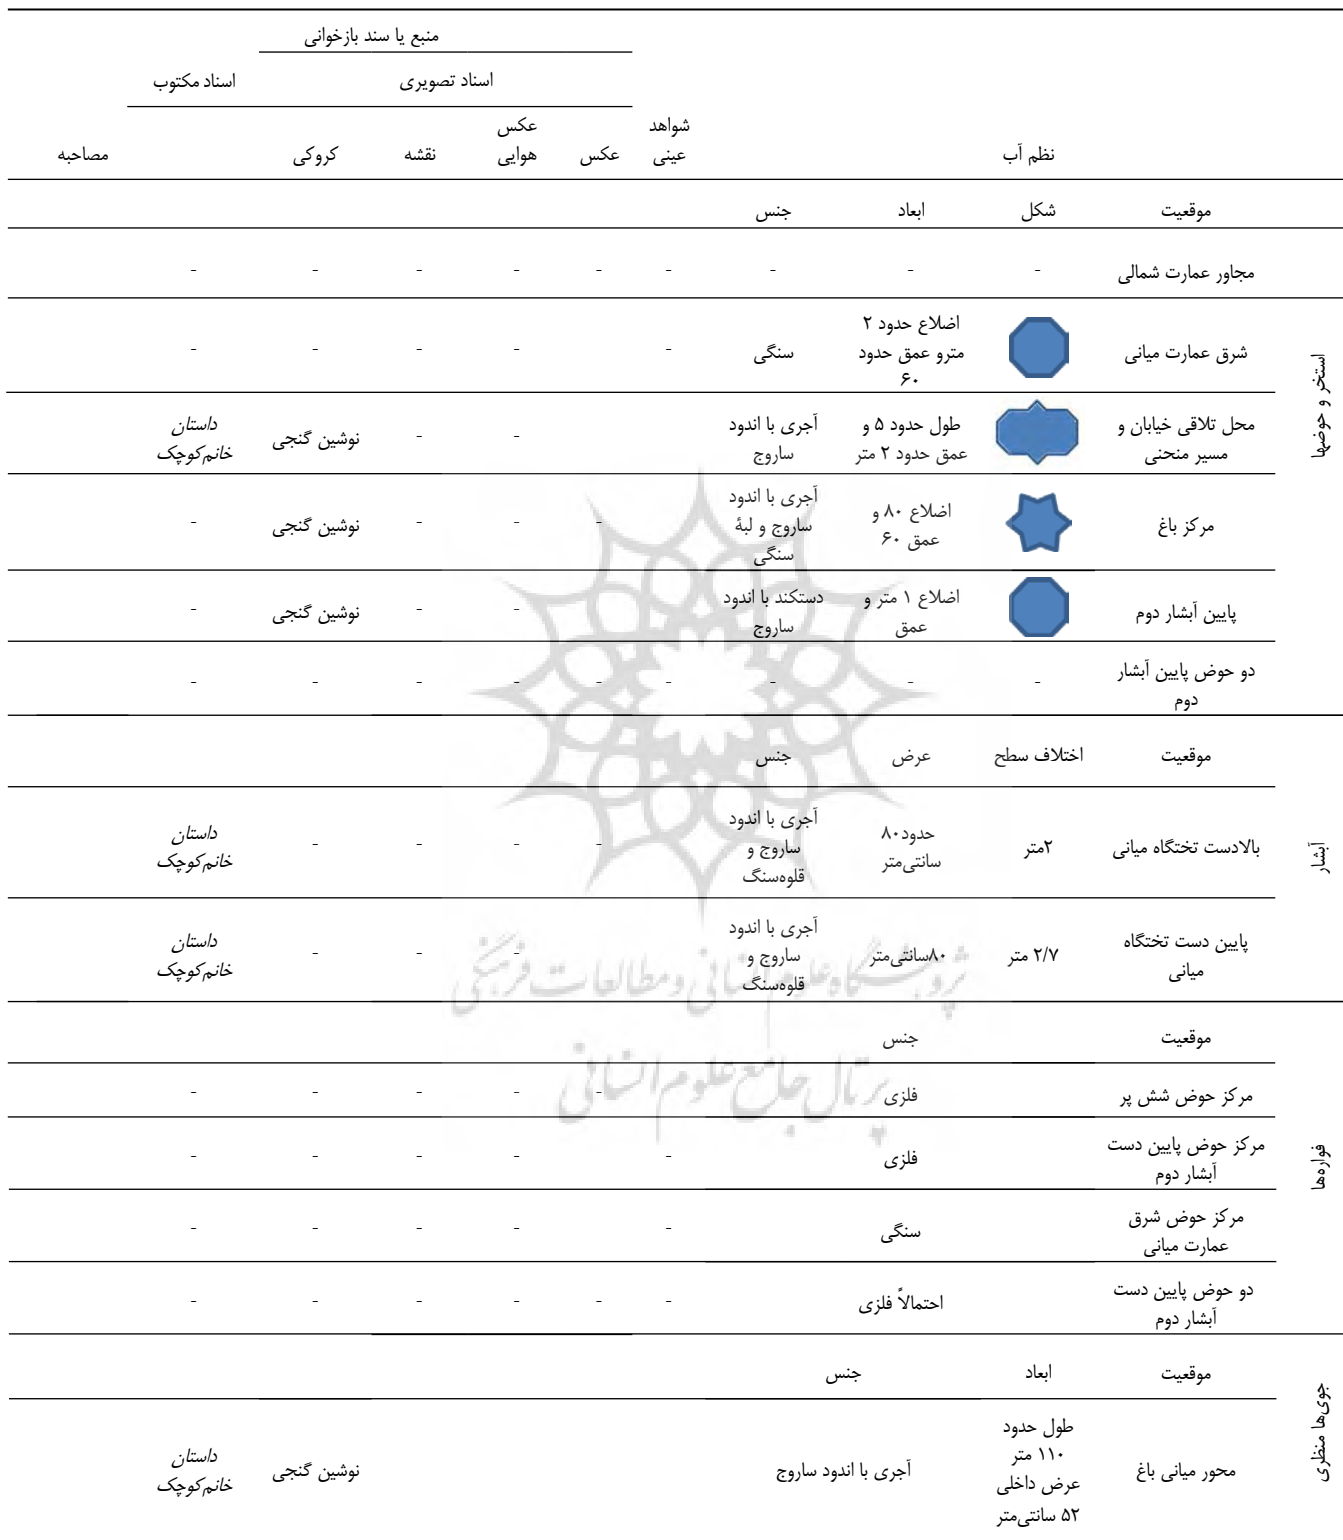 منبع یا سند بازخوانی
اسناد تصویری
اسناد مکتوب
نظم آب
شواهد
عینی
عکس
عکس
هوایی
نقشه
کروکی
مصاحبه
استخر و حوضها
موقعیت شکل ابعاد جنس
مجاور عمارت شمالی - - - - - - - - -
شرق عمارت میانی
اضلاع حدود ۲
مترو عمق حدود
۶۰
سنگی
- - - - -
محل تلاقی خیابان و
مسیر منحنی
طول حدود ۵ و
عمق حدود ۲ متر
آجری با اندود
ساروج
- -
نوشین گنجی
داستان
خانم‌کوچک
مرکز باغ
اضلاع ۸۰ و
عمق ۶۰
آجری با اندود
ساروج و لبۀ
سنگی
- - -
نوشین گنجی
-
پایین آبشار دوم
اضلاع ۱ متر و
عمق
دستکند با اندود
ساروج
- -
نوشین گنجی
-
دو حوض پایین آبشار
دوم
- - - - - - - - -
آبشار
موقعیت اختلاف سطح عرض جنس
بالادست تختگاه میانی
۲متر
حدود۸۰
سانتی‌متر
آجری با اندود
ساروج و
قلوه‌سنگ
- - - -
داستان
خانم‌کوچک
پایین دست تختگاه
میانی
۲/۷ متر
۸۰سانتی‌متر
آجری با اندود
ساروج و
قلوه‌سنگ
- - -
داستان
خانم‌کوچک
فواره‌ها
موقعیت جنس
مرکز حوض شش پر فلزی - - - - -
مرکز حوض پایین دست
آبشار دوم
فلزی
- - - - -
مرکز حوض شرق
عمارت میانی
سنگی
- - - - -
دو حوض پایین دست
آبشار دوم
احتمالاً فلزی
- - - - - -
جوی‌ها منظری
موقعیت ابعاد جنس
محور میانی باغ
طول حدود
۱۱۰ متر
عرض داخلی
۵۲ سانتی‌متر
آجری با اندود ساروج
نوشین گنجی
داستان
خانم‌کوچک
پژوهشگاه علوم انسانی و مطالعات فرهنگی
پرتال جامع علوم انسانی